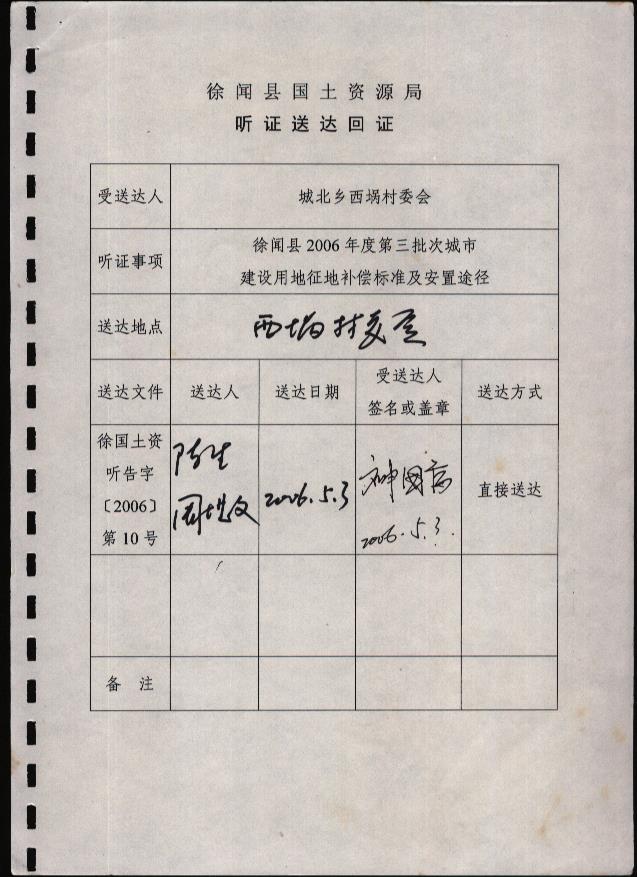 徐闻县国土资源局
听证送达回证
受送达人 城北乡西埚村委会
听证事项 徐闻县2006年度第三批次城市
建设用地征地补偿标准及安置途径
送达地点 西埚村委会
送达文件 送达人 送达日期 受送达人 送达方式
签名或盖章
徐国土资
听告字
〔2006〕
第10号
2006.5.3
2006.5.3.
直接送达
备 注